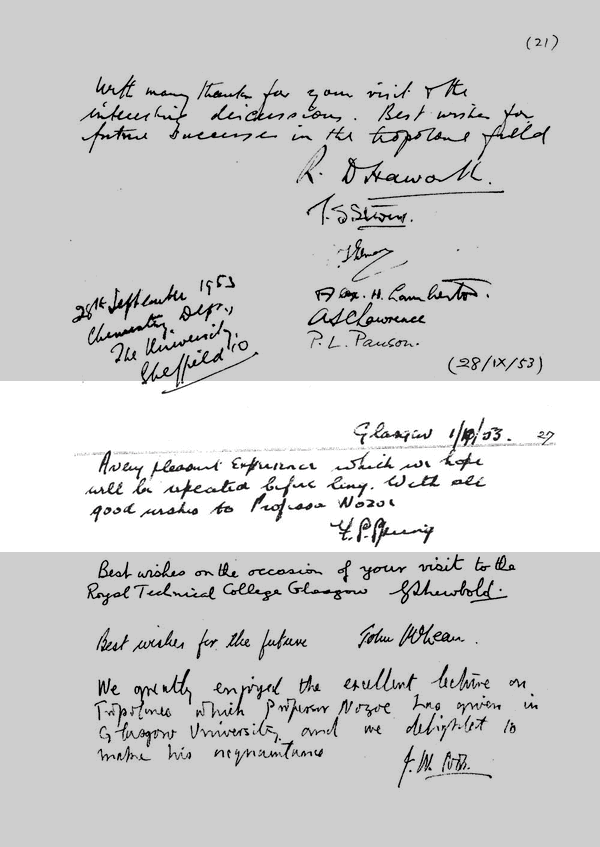 (21)
With many thanks for your visit & the
interesting discussions. Best wishes for
future successes in the tropolone field
R. D Haworth.
T. S. Stevens.
28th September 1953
Chemistry Dept.,
The University,
Sheffield 10
Alex. H. Lamberton.
A S C Lawrence
P. L. Pauson.
(28/IX/53)
Glasgow 1/10/53. 27
A very pleasant Experience which we hope
will be repeated before long. With all
good wishes to Professor Nozoe
Best wishes on the occasion of your visit to the
Royal Technical College Glasgow
Best wishes for the future John
We greatly enjoyed the excellent lecture on
Tropolones which Professor Nozoe has given in
Glasgow University, and we delighted to
make his acquaintance
J. W.